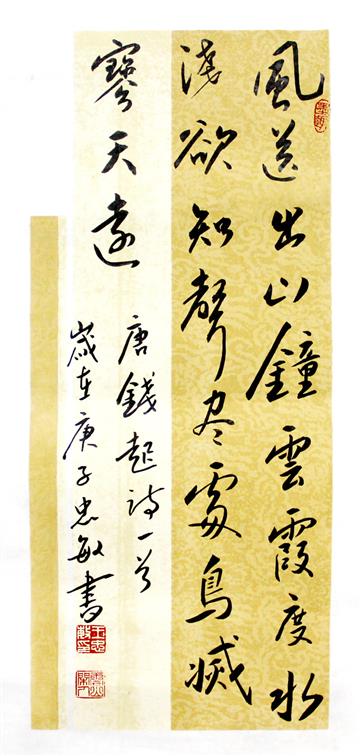 風送出山鐘雲霞度水
淺欲知聲尽處鳥滅
寥天遠
唐錢起詩一首
歲在庚子忠敏書
王忠敏印